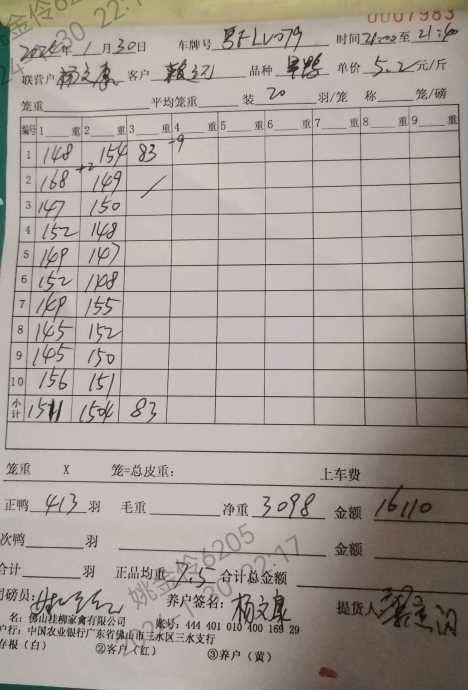 0007983
2024年1月30日 车牌号 粤FLV079 时间21:00至21:40
联营户 杨文康 客户 品种 单价 5.2元/斤
笼重 平均笼重 装 20 羽/笼 称 笼/磅
编号 1 重 2 重 3 重 4 重 5 重 6 重 7 重 8 重 9 重
1 148 154 83 -9
+2
2 168 149 /
3 147 150
4 152 148
5 149 147
6 152 148
7 149 155
8 145 152
9 145 150
10 156 151
小计 1511 1504 83
笼重 X 笼=总皮重: 上车费
正鸭 413 羽 毛重 净重 3098 金额 16110
次鸭 羽 金额
合计 羽 正品均重 7.5 合计总金额
司磅员: 养户签名: 杨文康 提货人
名: 佛山桂柳家禽有限公司 账号: 444 401 010 400 169 29
户行: 中国农业银行广东省佛山市三水区三水支行
存根(白) ②客户(红) ③养户(黄)
姚金伶6205
22:17